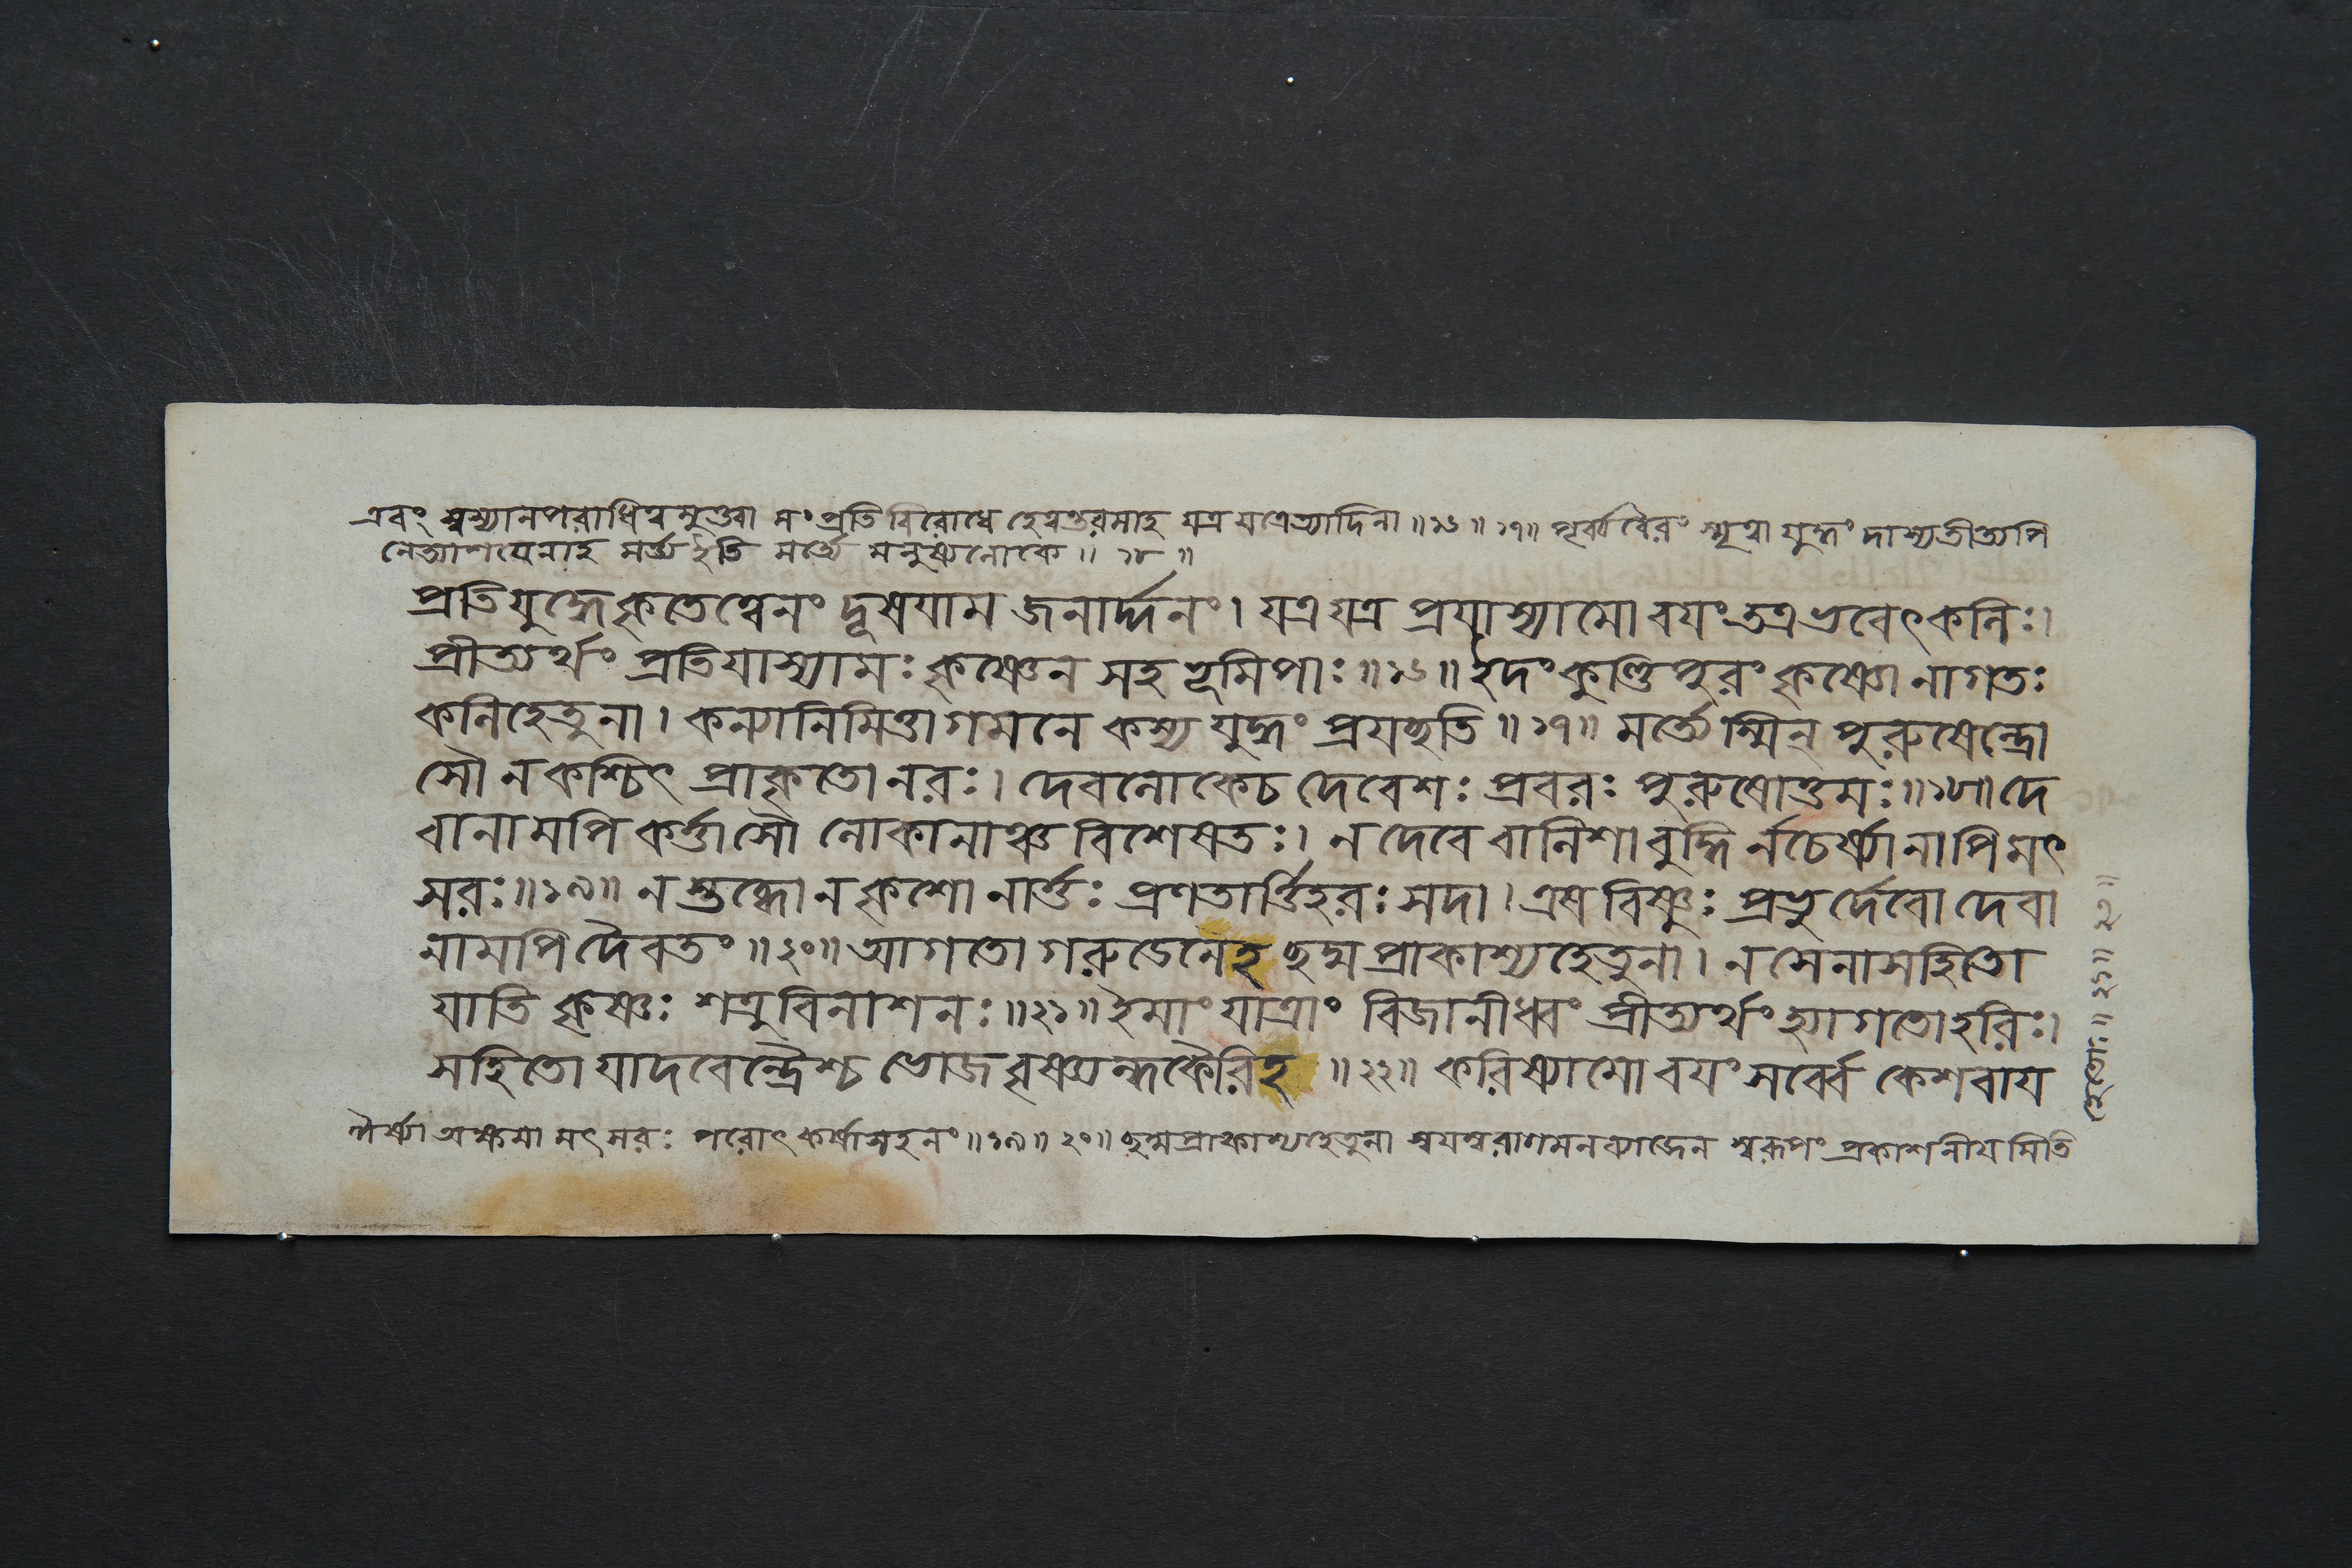 এবং স্বস্যানপরাধিত্বমুক্ত্বা মং প্রতি বিরোধে হেত্বন্তরমাহ যত্র যত্রেত্যাদিনা ॥ ১৬ ॥ ১৭ ॥ পূর্ব্ববৈরং স্মৃত্বা যুদ্ধং দাস্যতীত্যপি
নেত্যাশয়েনাহ মর্ত্ত্য ইতি মর্ত্ত্যে মনুষ্যলোকে ॥ ১৮ ॥
প্রতিযুদ্ধে কৃতে ত্বেনং দূষয়াম জনার্দ্দনং । যত্র যত্র প্রযাস্যামো বয়ং তত্র ভবেৎ কলিঃ ।
প্রীত্যর্থং প্রতিযাস্যামঃ কৃষ্ণেন সহ ভূমিপাঃ ॥ ১৬ ॥ ইদং কুণ্ডিপুরং কৃষ্ণো নাগতঃ
কলিহেতুনা । কন্যানিমিত্তাগমনে কস্য যুদ্ধং প্রযচ্ছতি ॥ ১৭ ॥ মর্ত্ত্যেস্মিন্ পুরুষেন্দ্রো
সৌ ন কশ্চিৎ প্রাকৃতো নরঃ । দেবলোকে চ দেবেশঃ প্রবরঃ পুরুষোত্তমঃ ॥ ১৮ ॥ দে
বানামপি কর্ত্তাসৌ লোকানাঞ্চ বিশেষতঃ । ন দেবে বালিশা বুদ্ধির্নচের্ষ্যা নাপি মৎ
সরঃ ॥ ১৯ ॥ ন স্তব্ধো ন কৃশো নার্ত্তঃ প্রণতার্ত্তিহরঃ সদা । এষ বিষ্ণুঃ প্রভুর্দেবো দেবা
নামপি দৈবতং ॥ ২০ ॥ আগতো গরুডেনেহ ছদ্মপ্রাকাশ্যহেতুনা । ন সেনাসহিতো
যাতি কৃষ্ণঃ শত্রুবিনাশনঃ ॥ ২১ ॥ ইমাং যাত্রাং বিজানীধ্বং প্রীত্যর্থং হ্যাগতো হরিঃ ।
সহিতো যাদবেন্দ্রৈশ্চ ভোজবৃষ্ণ্যন্ধকৈরিহ ॥ ২২ ॥ করিষ্যামো বয়ং সর্ব্বে কেশবায়
ঈর্ষ্যা অক্ষমা মৎসরঃ পরোৎকর্ষাসহনং ॥ ১৯ ॥ ২০ ॥ ছদ্মপ্রাকাশ্যহেতুনা স্বয়ম্বরাগমনব্যাজেন স্বরূপং প্রকাশনীয়মিতি
হেতোঃ ॥ ২১ ॥ ২২ ॥